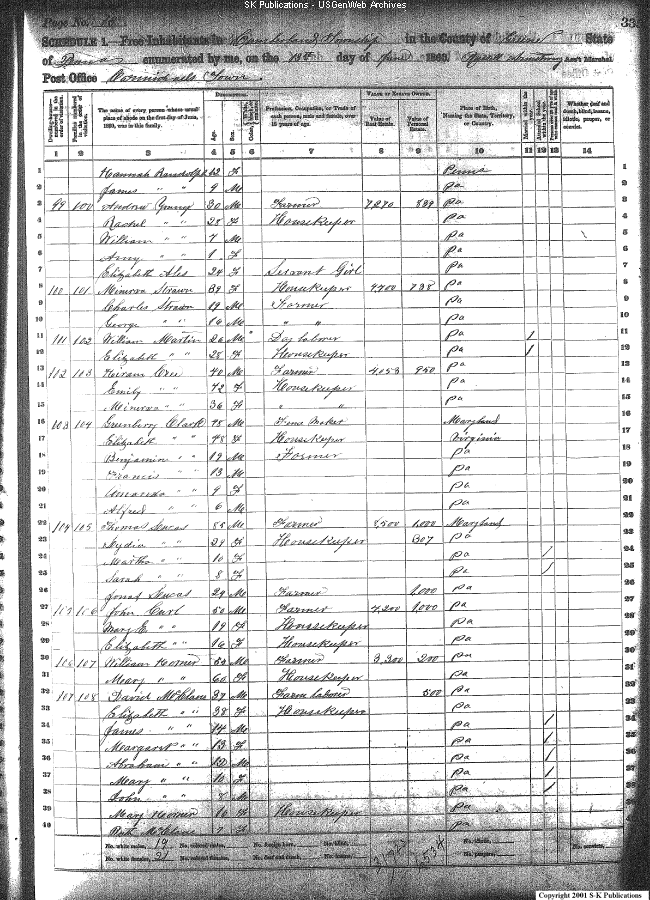 SK Publications - USGenWeb Archives
Page No. 33
SCHEDULE 1.—Free Inhabitants in Cumberland Township in the County of Greene State
of Penna enumerated by me, on the 19th day of June 1860. Ass't Marshal.
Post Office Carmichaels Town
Dwelling-houses numbered in the order of visitation.
Families numbered in the order of visitation.
The name of every person whose usual place of abode on the first day of June, 1860, was in this family.
DESCRIPTION.
Age.
Sex.
Profession, Occupation, or Trade of each person, male and female, over 15 years of age.
VALUE OF ESTATE OWNED.
Value of Real Estate.
Value of Personal Estate.
Place of Birth, Naming the State, Territory, or Country.
Married within the year.
Whether deaf and dumb, blind, insane, idiotic, pauper, or convict.
1 2 3 4 5 6 7 8 9 10 11 12 13 14
1 Hannah Randolph F Penna 1
2 James " " 9 M Pa 2
3 99 100 Andrew Young 30 M Farmer 7,270 889 Pa 3
4 Rachel " " 28 F Housekeeper Pa 4
5 William " " 7 M Pa 5
6 " " 1 F Pa 6
7 Elizabeth 24 F Servant Girl Pa 7
8 100 101 Minerva Strawn 39 F Housekeeper 738 Pa 8
9 Charles Strawn 19 M Farmer Pa 9
10 George " " 16 M " " Pa 10
11 111 102 William Martin 26 M Day labour Pa / 11
12 Elizabeth " " 28 F Housekeeper Pa / 12
13 112 103 Hiram Cree 40 M Farmer 4,053 950 Pa 13
14 Emily " " 42 F Housekeeper Pa 14
15 Minerva " " 36 F " " Pa 15
16 103 104 Greenberry Clark 45 M Maryland 16
17 Elizabeth " " 48 F Housekeeper Virginia 17
18 Benjamin " " 19 M Farmer Pa 18
19 Francis " " 13 M Pa 19
20 Amanda " " 9 F Pa 20
21 Alfred " " 6 M Pa 21
22 104 105 Thomas Lucas 85 M Farmer 8,500 1,000 Maryland 22
23 Lydia " " 29 F Housekeeper 307 Pa 23
24 Martha " " 10 F Pa / 24
25 Sarah " " 8 F Pa / 25
26 Lucas 29 M Farmer 1,000 Pa 26
27 105 106 John Curl 50 M Farmer 4,200 1,000 Pa 27
28 Mary E. " " 19 F Housekeeper Pa 28
29 Elizabeth " " 16 F Housekeeper Pa 29
30 106 107 William Horner M Farmer 3,300 200 Pa 30
31 Mary " " 60 F Housekeeper Pa 31
32 107 108 David McClane 37 M Farm labour 500 Pa 32
33 Elizabeth " " 38 F Housekeeper Pa 33
34 James " " 14 M Pa / 34
35 Margaret " " 13 F Pa / 35
36 Abraham " " 12 M Pa / 36
37 Mary " " 10 F Pa / 37
38 John " " 8 M Pa / 38
39 Mary Horner F Housekeeper Pa 39
40 Ruth McClane 7 F Pa 40
No. white males, 19 No. colored males, No. foreign born, No. blind,
No. white females, 21 No. colored females, No. deaf and dumb, No. insane, No. idiotic, No. paupers, No. convicts,
Copyright 2001 S-K Publications